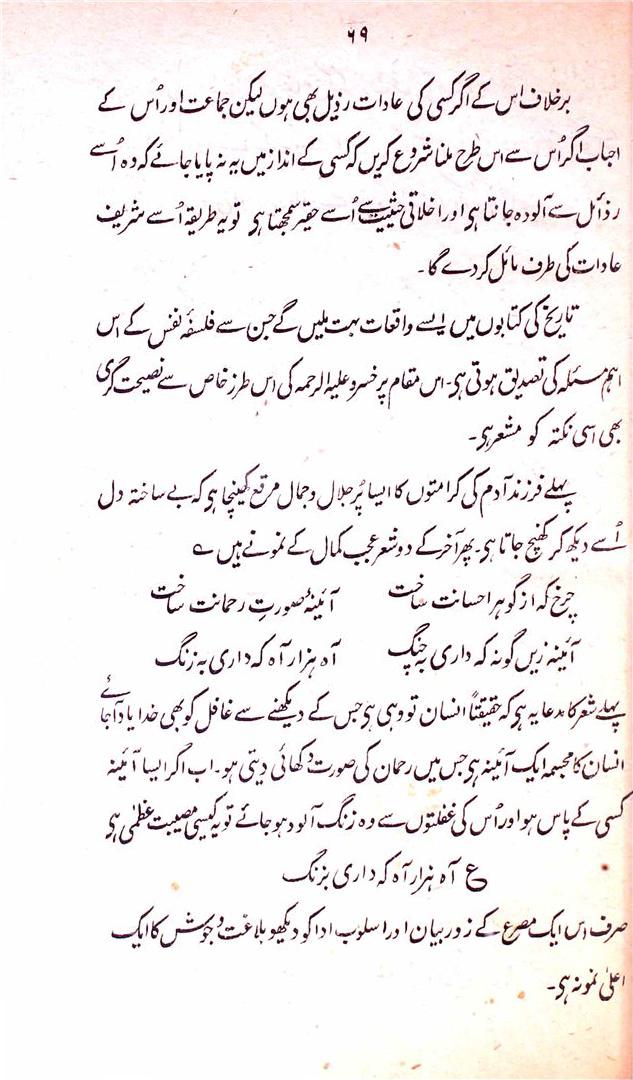 ۶۹
برخلاف اس کے اگر کسی کی عادات رذیل بھی ہوں لیکن جماعت اور اُس کے
احباب اگر اُس سے اس طرح ملنا شروع کریں کہ کسی کے انداز میں یہ نہ پایا جائے کہ وہ اُسے
رذائل سے آلودہ جانتا ہی اور اخلاقی حیثیت سے اُسے حقیر سمجھتا ہی تو یہ طریقہ اُسے شریف
عادات کی طرف مائل کردے گا۔
تاریخ کی کتابوں میں ایسے واقعات بہت ملیں گے جن سے فلسفۂ نفس کے اس
اہم مسئلہ کی تصدیق ہوتی ہی۔ اس مقام پر خسرو علیہ الرحمہ کی اس طرز خاص سے نصیحت گری
بھی اسی نکتہ کو مشعر ہی۔
پہلے فرزند آدم کی کرامتوں کا ایسا پُر جلال و جمال مرقع کھینچا ہی کہ بے ساختہ دل
اُسے دیکھ کر کھنچ جاتا ہی۔ پھر آخر کے دو شعر عجب کمال کے نمونے ہیں ے
چرخ کہ از گوہر احسانت ساخت آئینۂ صورتِ رحمانت ساخت
آئینہ زیں گونہ کہ داری بہ چنگ آہ ہزار آہ کہ داری بہ زنگ
پہلے شعر کا مدعا یہ ہی کہ حقیقتاً انسان تو وہی ہی جس کے دیکھنے سے غافل کو بھی خدا یاد آ جائے
انسان کا مجسمہ ایک آئینہ ہی جس میں رحمان کی صورت دکھائی دیتی ہو۔ اب اگر ایسا آئینہ
کسی کے پاس ہو اور اُس کی غفلتوں سے وہ زنگ آلود ہو جائے تو یہ کیسی مصیبت عظمٰی ہی
ع آہ ہزار آہ کہ داری بزنگ
صرف اس ایک مصرع کے زور بیان اور اسلوب ادا کو دیکھو بلاغت و جوش کا ایک
اعلیٰ نمونہ ہی۔